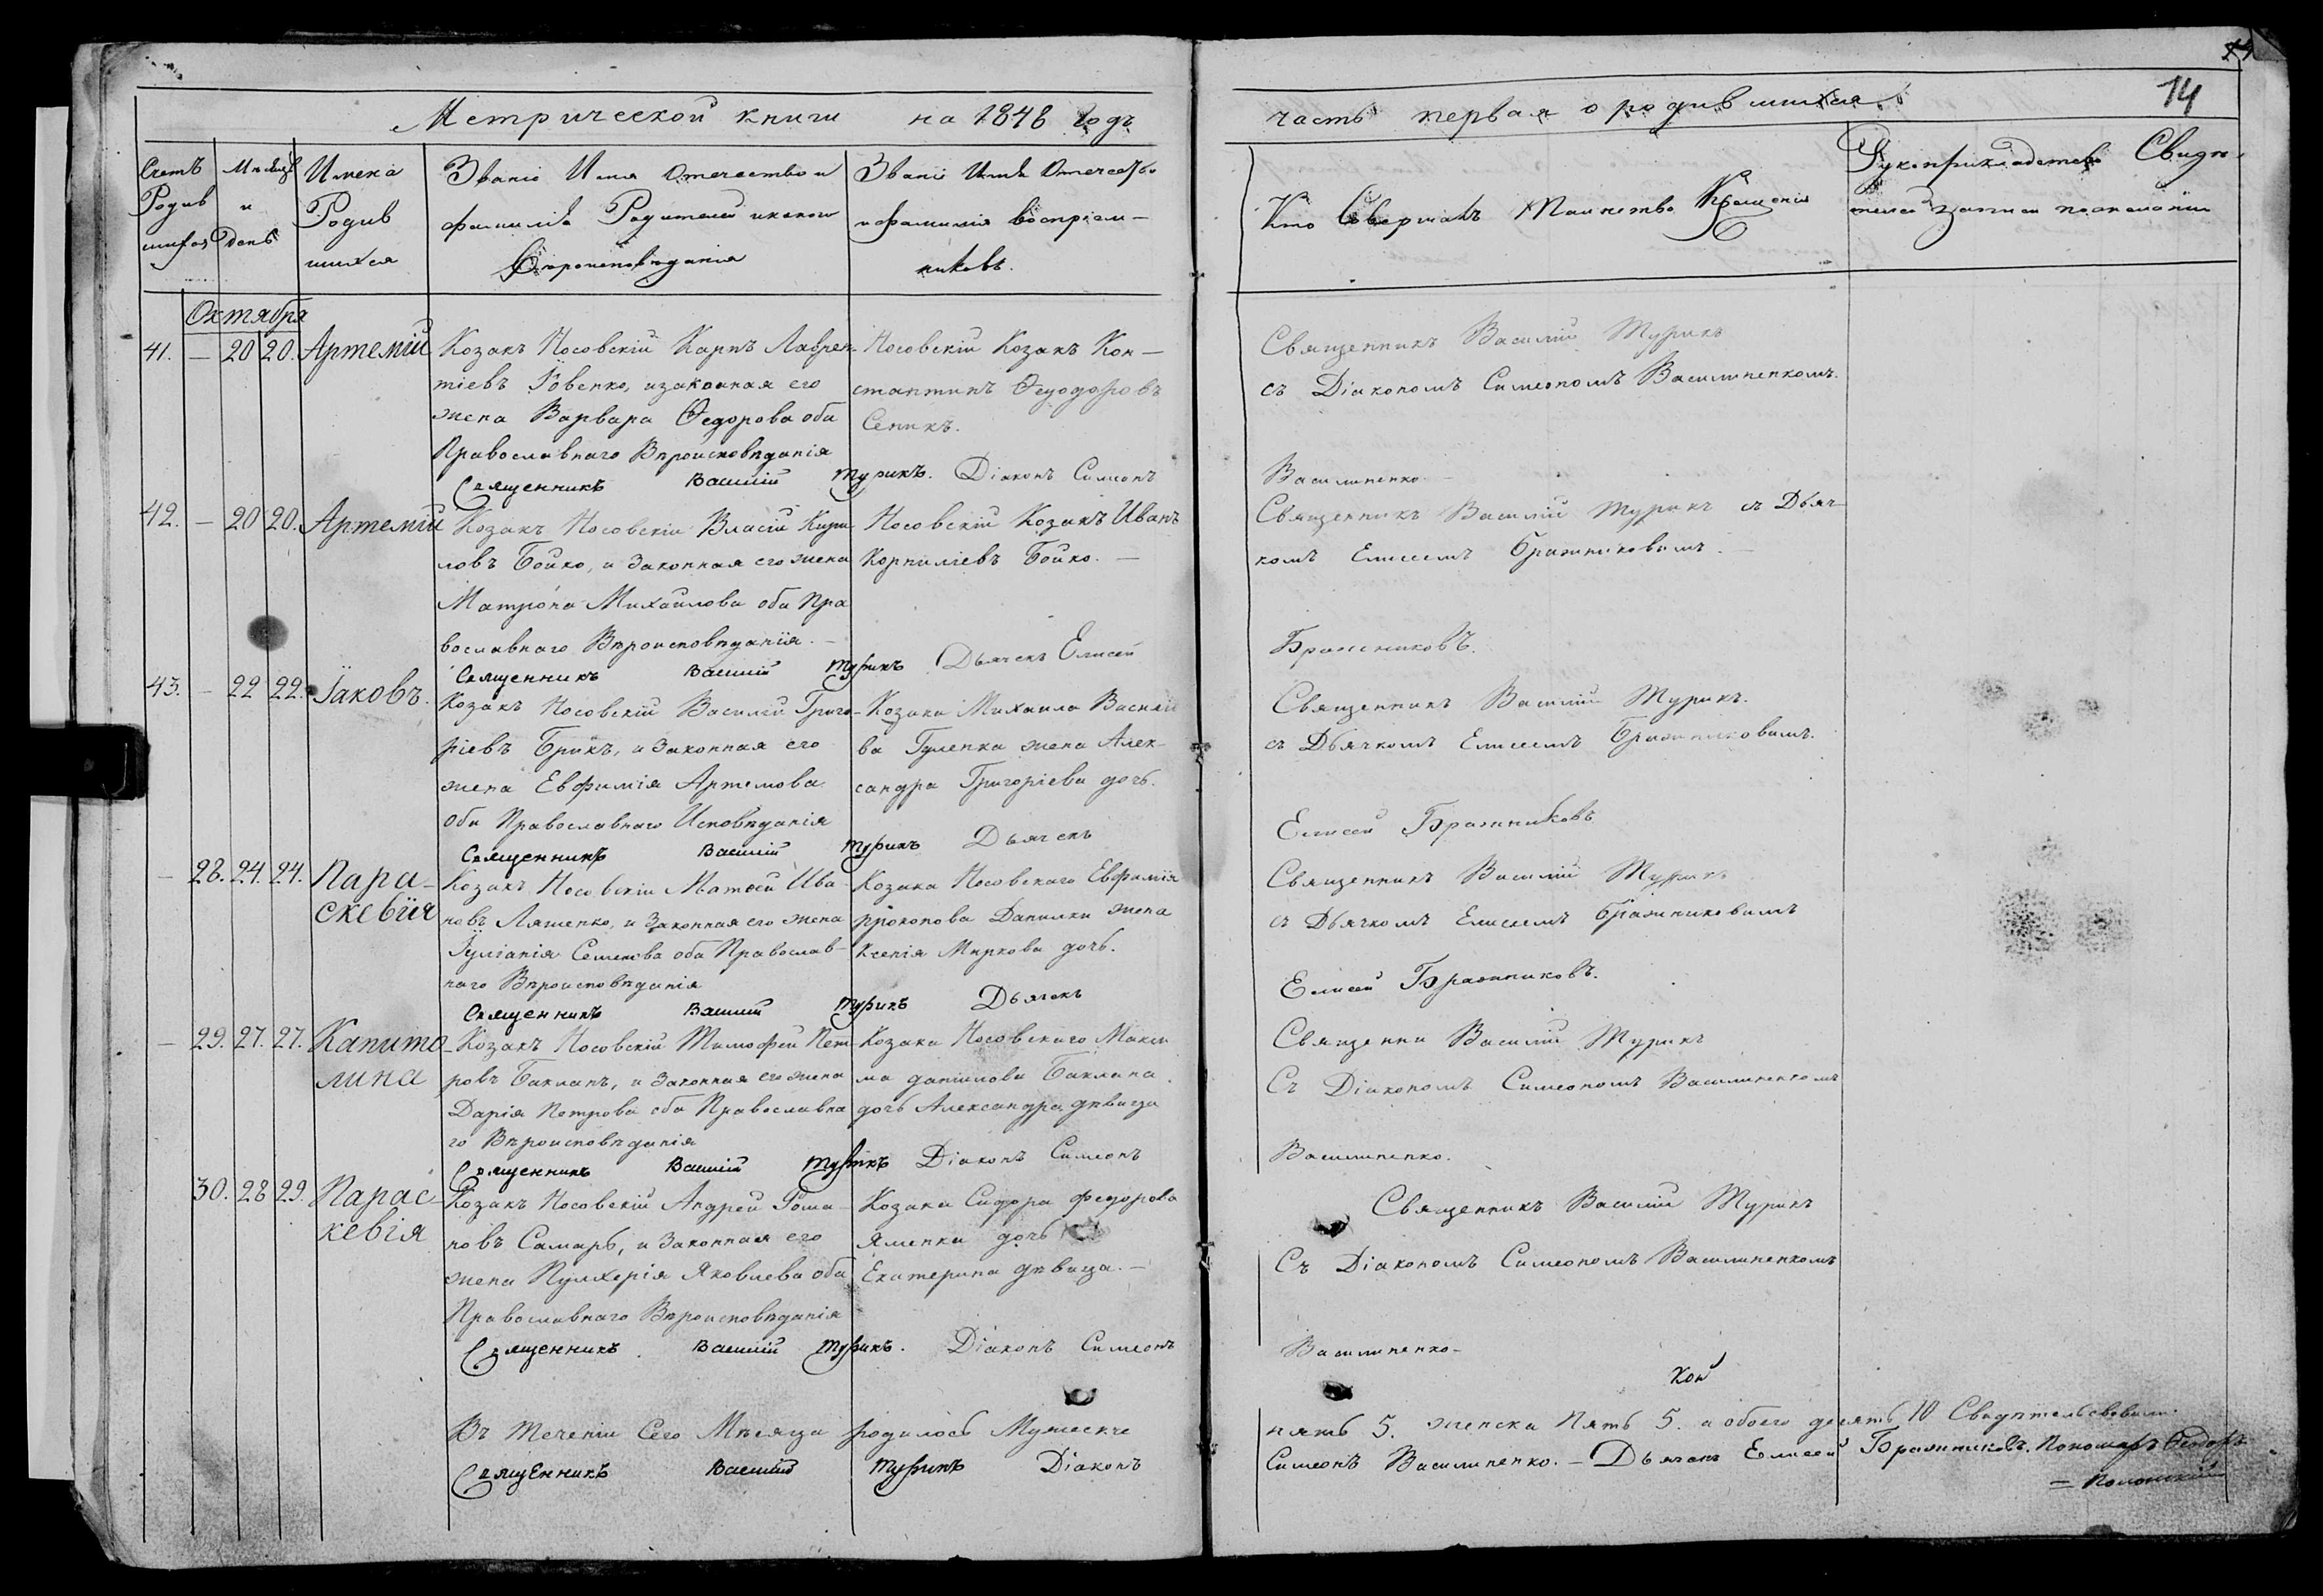 14
Метрической книги на 1848 годъ
часть первая о родившихся
Счетъ Родив шихся
Мѣсяцъ и день
Имена Родив шихся
Званіе Имя Отечество и
фамилія Родителей и какого
Вѣроисповѣданія
Званіе Имя Отечество
и фамилія воспріем-
никовъ.
Кто Совершалъ Таинство Крещенія
Рукоприкладство Свидѣ-
телей записи по желанію
Октября
41. — 20 20. Артемій
Козакъ Носовскій Карпъ Лаврен-
тіевъ Ровенко, изаконная его
жена Варвара Ѳедорова оба
Православнаго Вѣроисповѣданія
Носовскій Козакъ Кон-
стантинъ Ѳеодоровъ
Сеникъ.
Священникъ Василій Турикъ
съ Діакономъ Симеономъ Василиненкомъ.
Священникъ Василій Турикъ. Діаконъ Симеонъ
Василиненко
42. — 20 20. Артемій
Козакъ Носовскій Власій Кири-
ловъ Бойко, и Законная его жена
Матрона Михайлова оба Пра
вославнаго Вѣроисповѣданія. —
Носовскій Козакъ Иванъ
Корниліевъ Бойко. —
Священникъ Василій Турикъ съ Дьяч-
комъ Елисеемъ Бражниковымъ. —
Священникъ Василій Турикъ Дьячекъ Елисей
Бражниковъ.
43. — 22 22. Іаковъ.
Козакъ Носовскій Василій Григо-
ріевъ Брикъ, и Законная его
жена Евфимія Артемова
оба Православнаго Исповѣданія
Козака Михаила Василіе
ва Гуленка жена Алек-
сандра Григоріева дочь.
Священникъ Василій Турикъ.
съ Дьячкомъ Елисеемъ Бражниковымъ.
Священникъ Василій Турикъ Дьячекъ
Елисей Бражниковъ
— 28. 24. 24. Пара-
скевія
Козакъ Носовскій Матѳей Ива
новъ Ляшенко, и Законная его жена
Іуліанія Семенова оба Православ-
наго Вѣроисповѣданія
Козака Носовскаго Евфимія
Прокопова Данилки жена
Ксенія Маркова дочь.
Священникъ Василій Турикъ
съ Дьячкомъ Елисеемъ Бражниковымъ
Священникъ Василій Турикъ Дьячекъ
Елисей Бражниковъ.
— 29. 27. 27. Капито
лина
Козакъ Носовскій Тимофей Пет-
ровъ Бакланъ, и Законная его жена
Дарія Петрова оба Православна
го Вѣроисповѣданія
Козака Носовскаго Макси
ма данилова Баклана
дочь Александра дѣвица
Священни Василій Турикъ
Съ Діакономъ Симеономъ Василиненкомъ
Священникъ Василій Турикъ Діаконъ Симеонъ
Василиненко.
30. 28 29. Парас-
кевія
Козакъ Носовскій Андрей Рома-
новъ Самарь, и Законная его
жена Пулхерія Яковлева оба
Православнаго Вѣроисповѣданія
Козака Сидора федорова
Яменки дочь
Екатерина дѣвица. —
Священникъ Василій Турикъ
Съ Діакономъ Симеономъ Василиненкомъ
Священникъ Василій Турикъ. Діаконъ Симеонъ
Василиненко —
Въ теченіи Сего Мѣсяца родилось Мужеска
пять 5. женска Пять 5. а обоего десять 10 Свидѣтельствовали.
Священникъ Василій Турикъ Діаконъ
Симеонъ Василиненко. — Дьячекъ Елисей Бражниковъ. Пономарь Ѳеодоръ